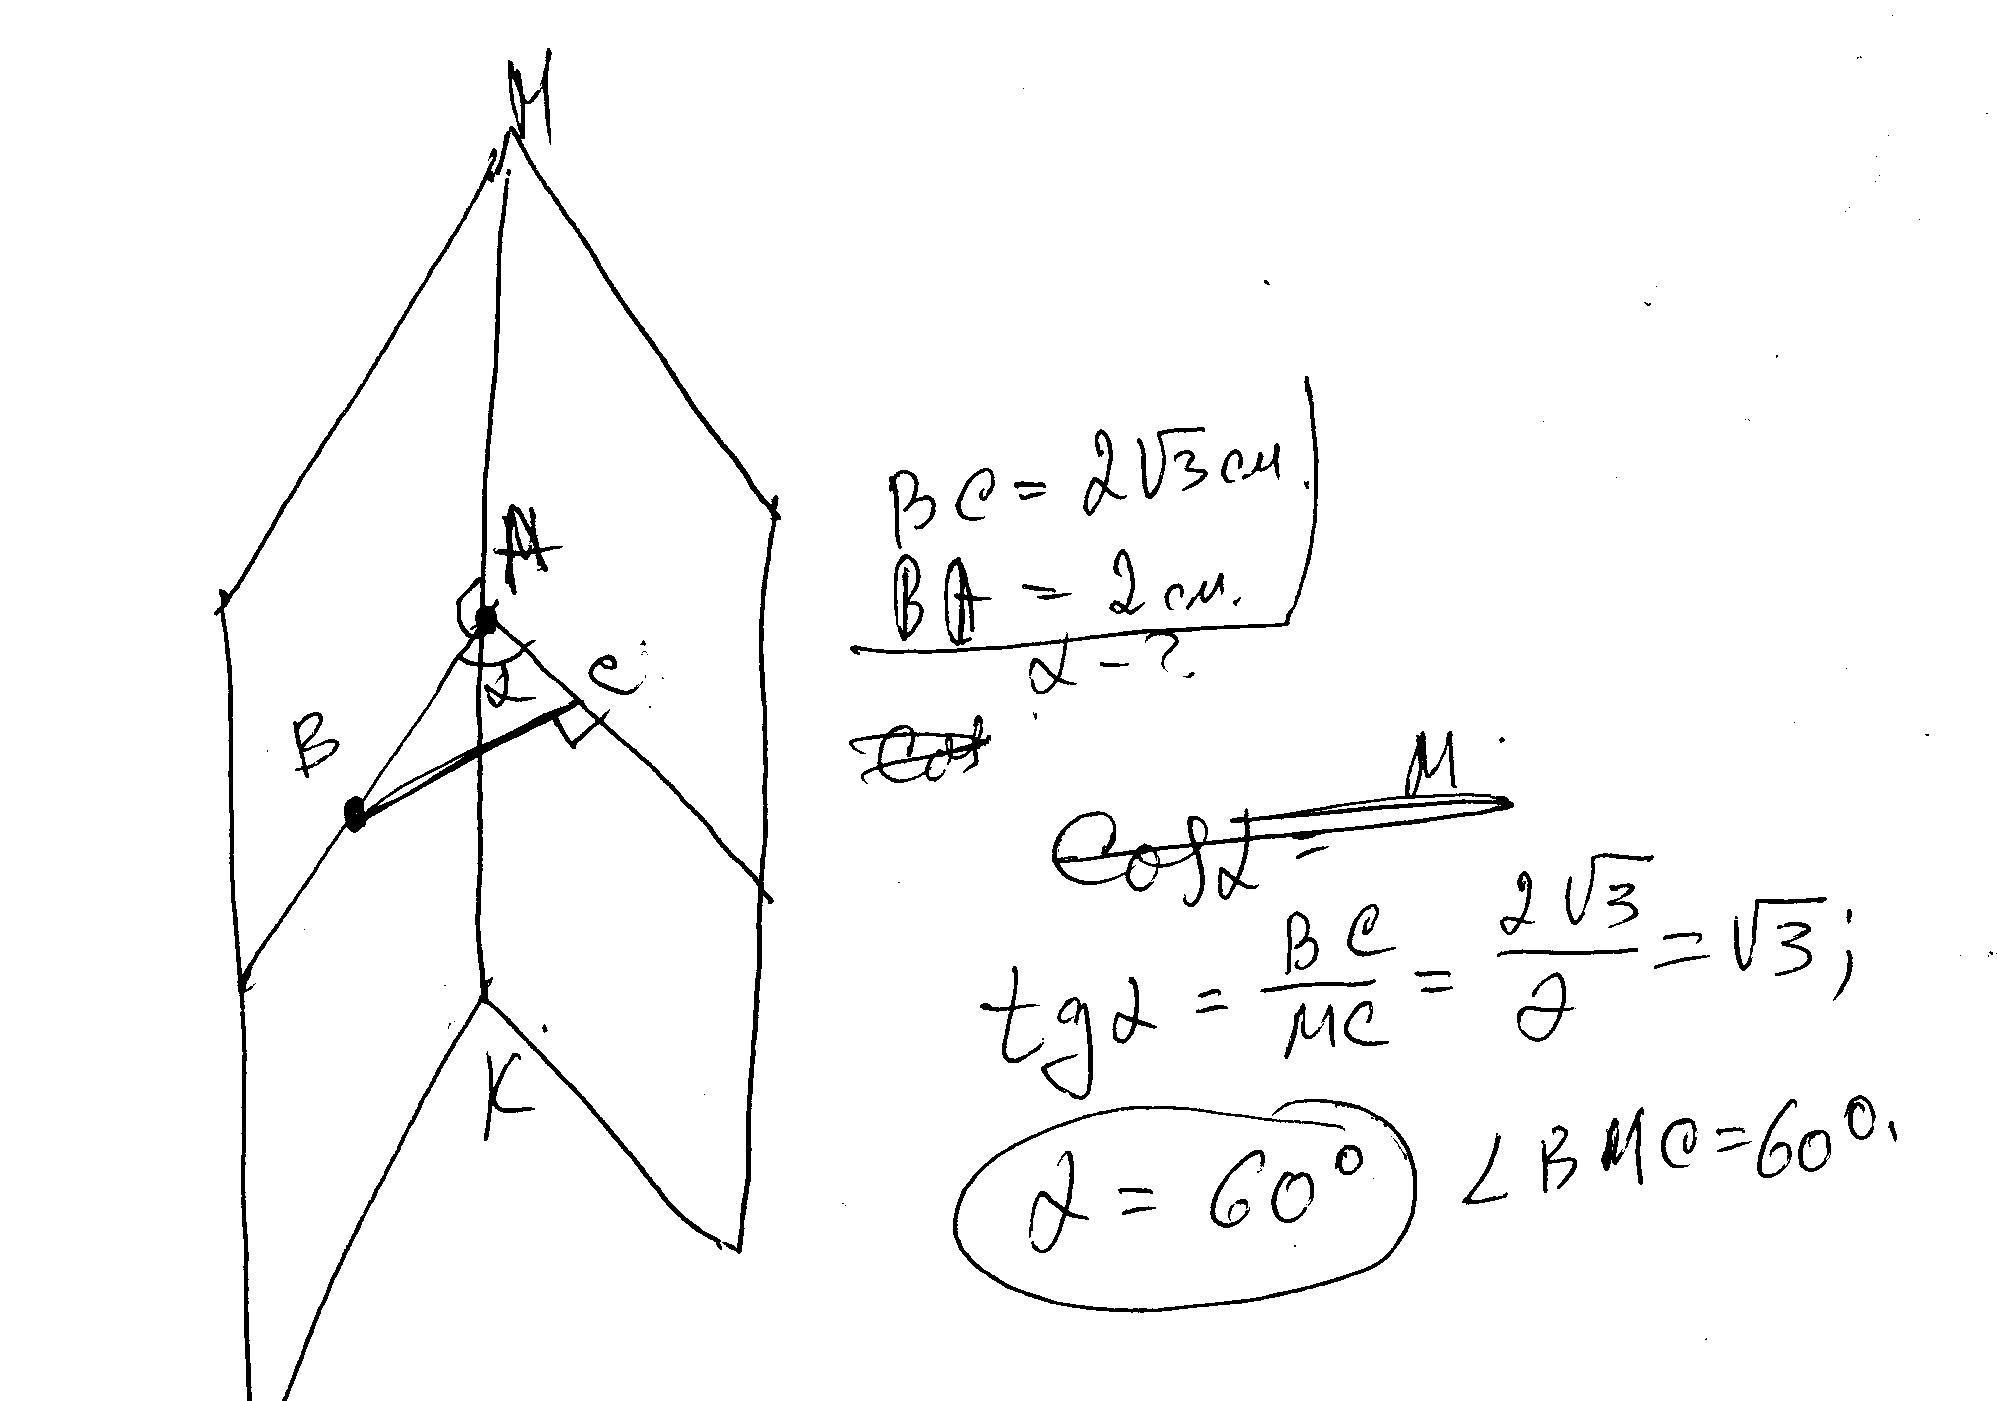 M
A
α
C
B
K
BC = 2√3 см.
BA = 2 см.
α - ?
Cos
M
Cos α =
tg α = BC/MC = 2√3/2 = √3;
α = 60° ∠BMC = 60°.